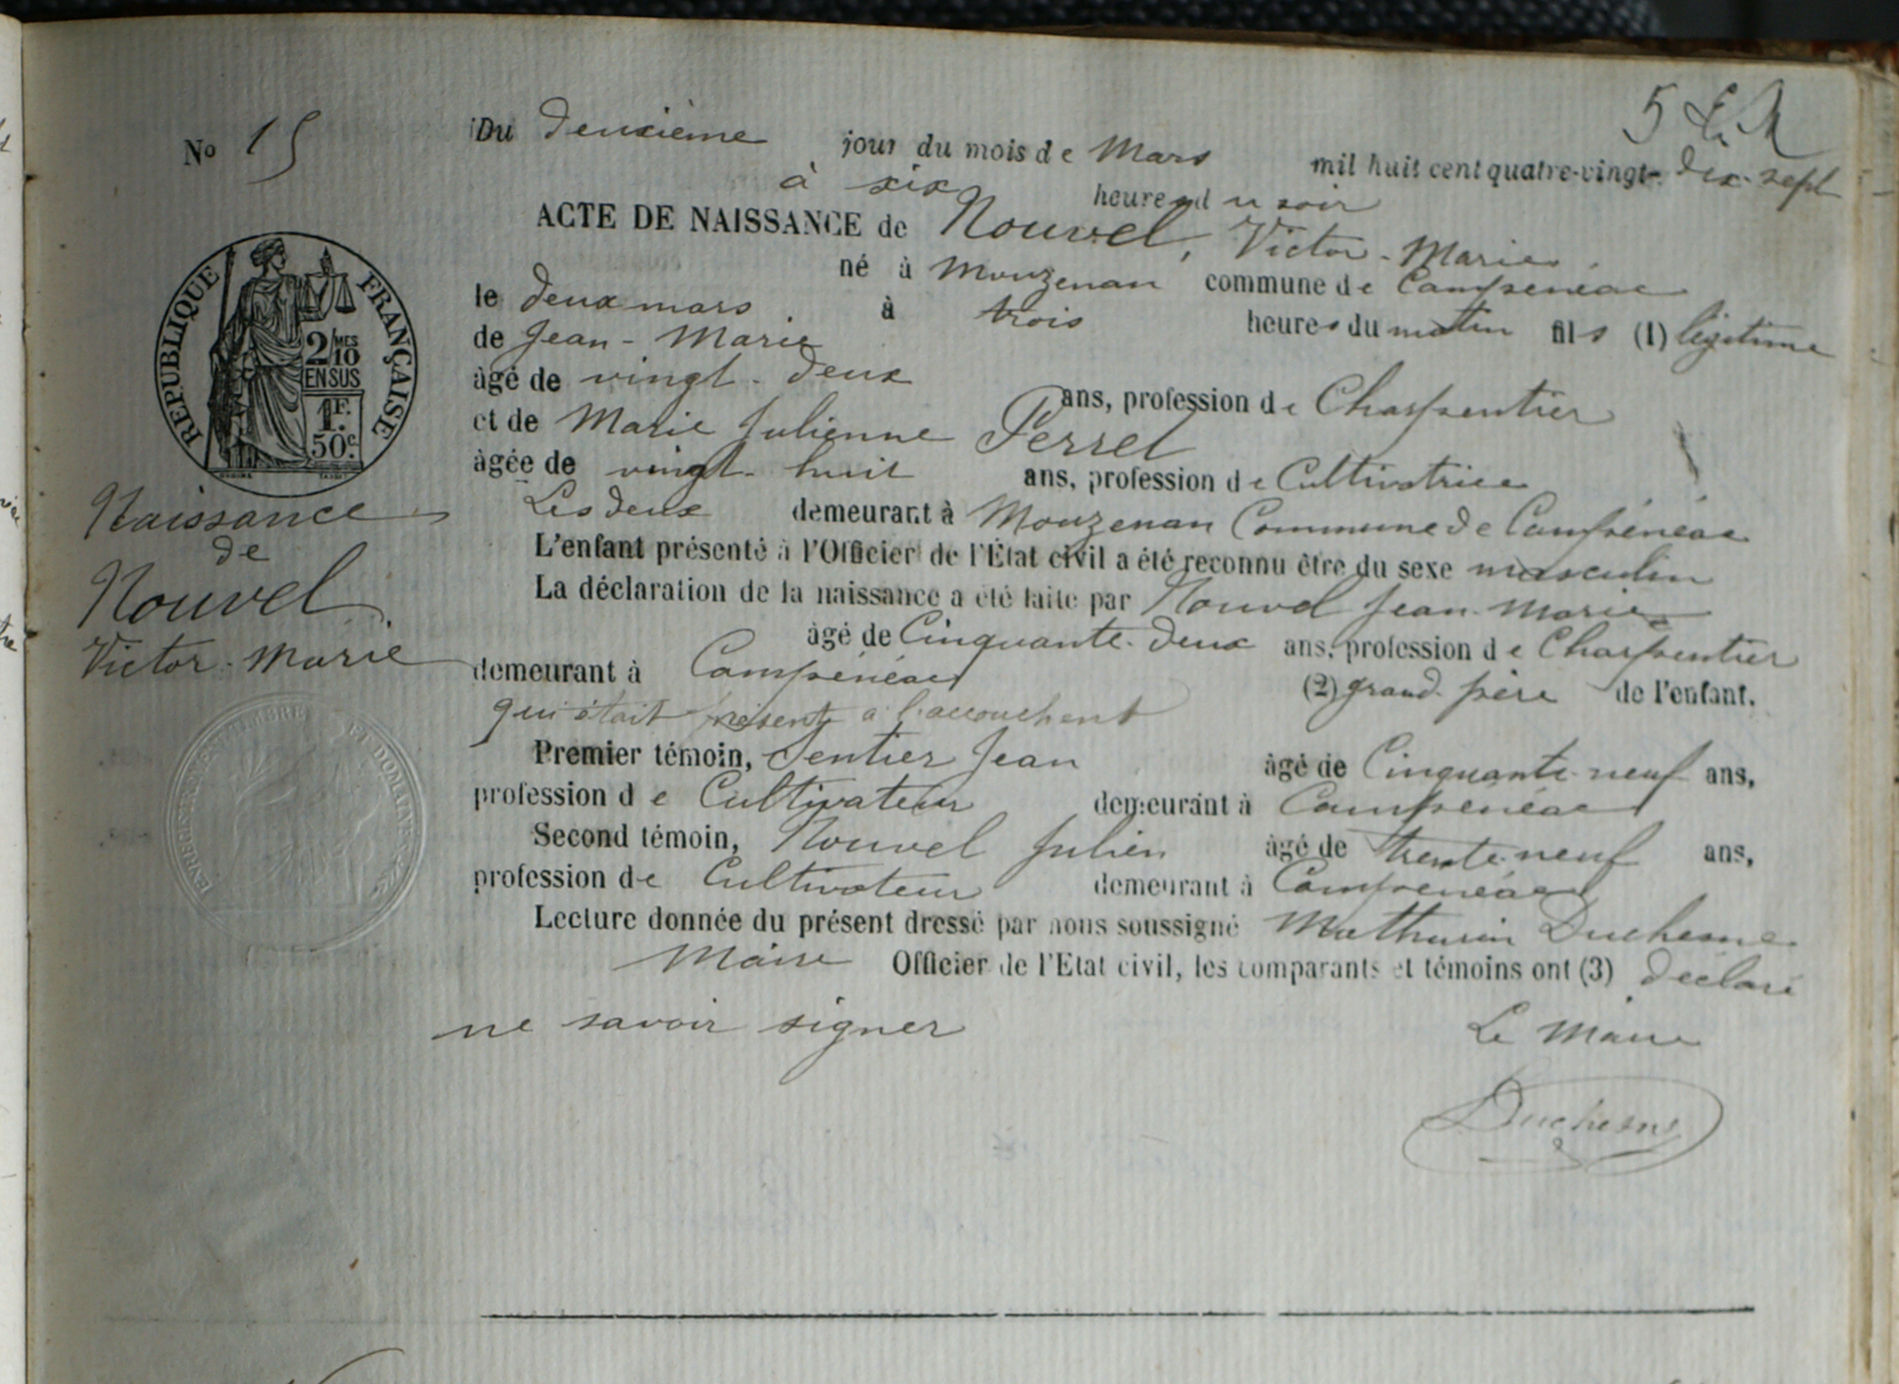 5
No 15
Du deuxième jour du mois de Mars mil huit cent quatre-vingt-dix-sept
à six heures du soir
ACTE DE NAISSANCE de Nouvel, Victor-Marie
né à Mouzenan commune de Campénéac
le deux mars à trois heures du matin fils (1) légitime
de Jean-Marie
âgé de vingt-deux ans, profession de Charpentier
et de Marie Julienne Perrel
âgée de vingt-huit ans, profession de Cultivatrice
Les deux demeurant à Mouzenan Commune de Campénéac
L'enfant présenté à l'Officier de l'État civil a été reconnu être du sexe masculin
La déclaration de la naissance a été faite par Nouvel Jean-Marie
âgé de Cinquante-deux ans, profession de Charpentier
demeurant à Campénéac (2) grand-père de l'enfant.
qui était présent à l'accouchent
Premier témoin, Sentier Jean âgé de Cinquante-neuf ans,
profession de Cultivateur demeurant à Campénéac
Second témoin, Nouvel Julien âgé de trente-neuf ans,
profession de Cultivateur demeurant à Campénéac
Lecture donnée du présent dressé par nous soussigné Mathurin Duchesne
Maire Officier de l'Etat civil, les comparants et témoins ont (3) déclaré
ne savoir signer
Le Maire
Duchesne
REPUBLIQUE FRANÇAISE
2/10 MES
EN SUS
1 F.
50 c.
Naissance
de
Nouvel
Victor-Marie
ENREGISTREMENT TIMBRE ET DOMAINES